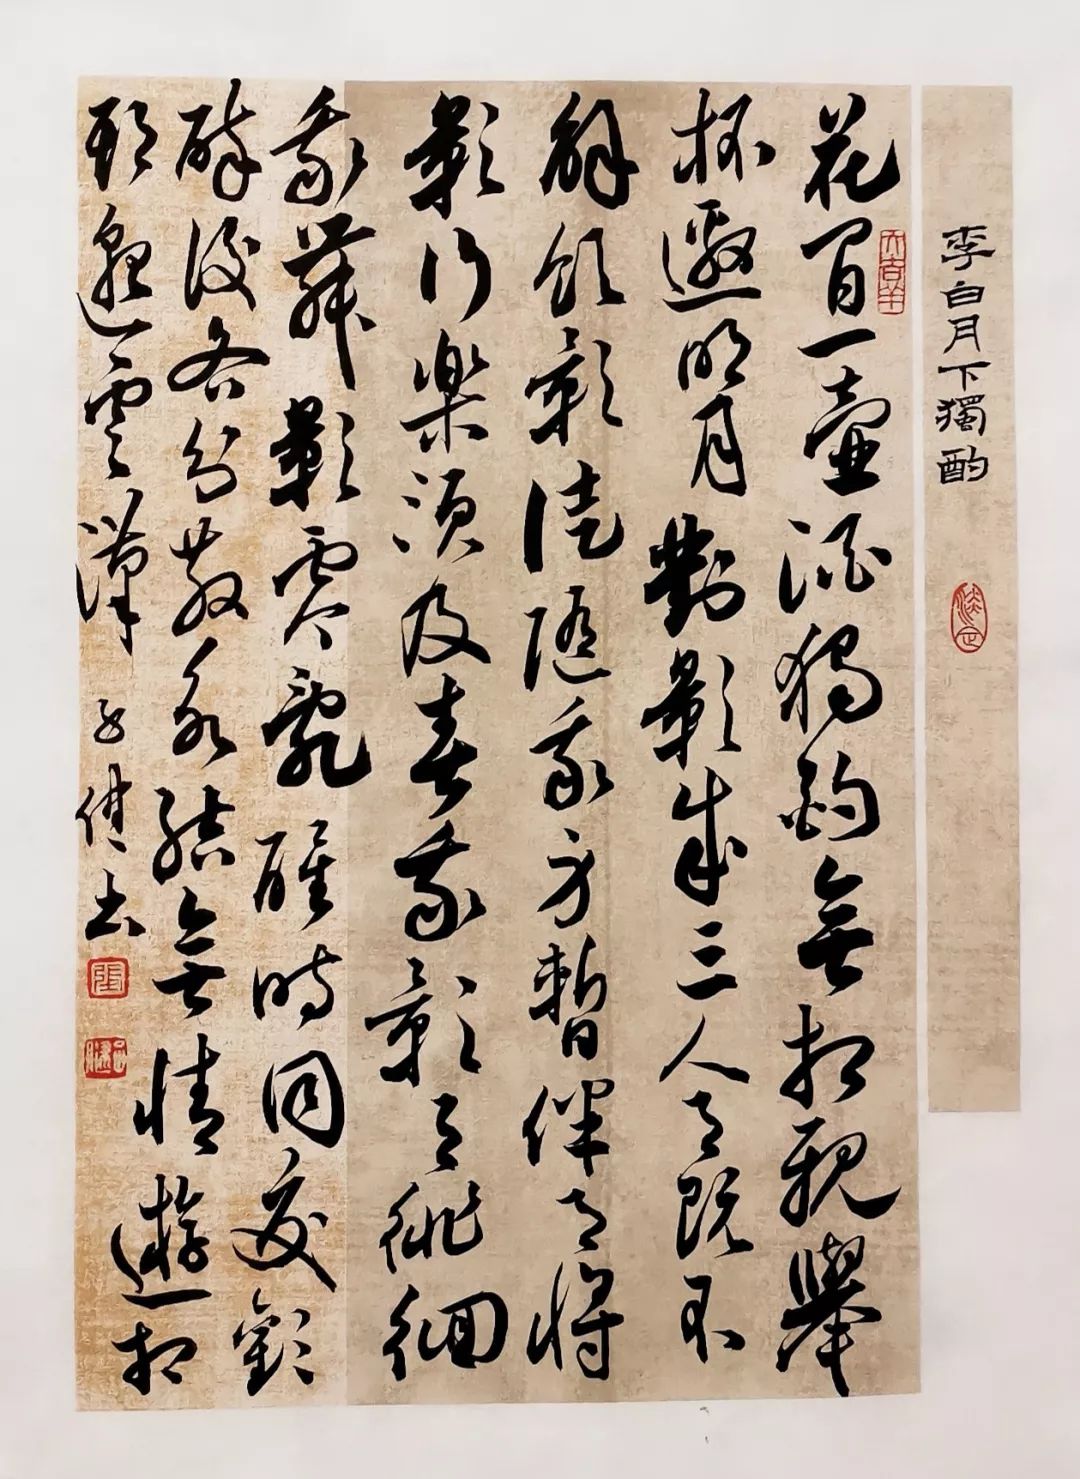 李白月下獨酌
大吉羊
花間一壺酒獨酌無相親舉
杯邀明月對影成三人月既不
解飲影徒隨我身暫伴月將
影行樂須及春我歌月徘徊
我舞影零亂醒時同交歡
醉後各分散永結無情遊相
期邈雲漢 书
張